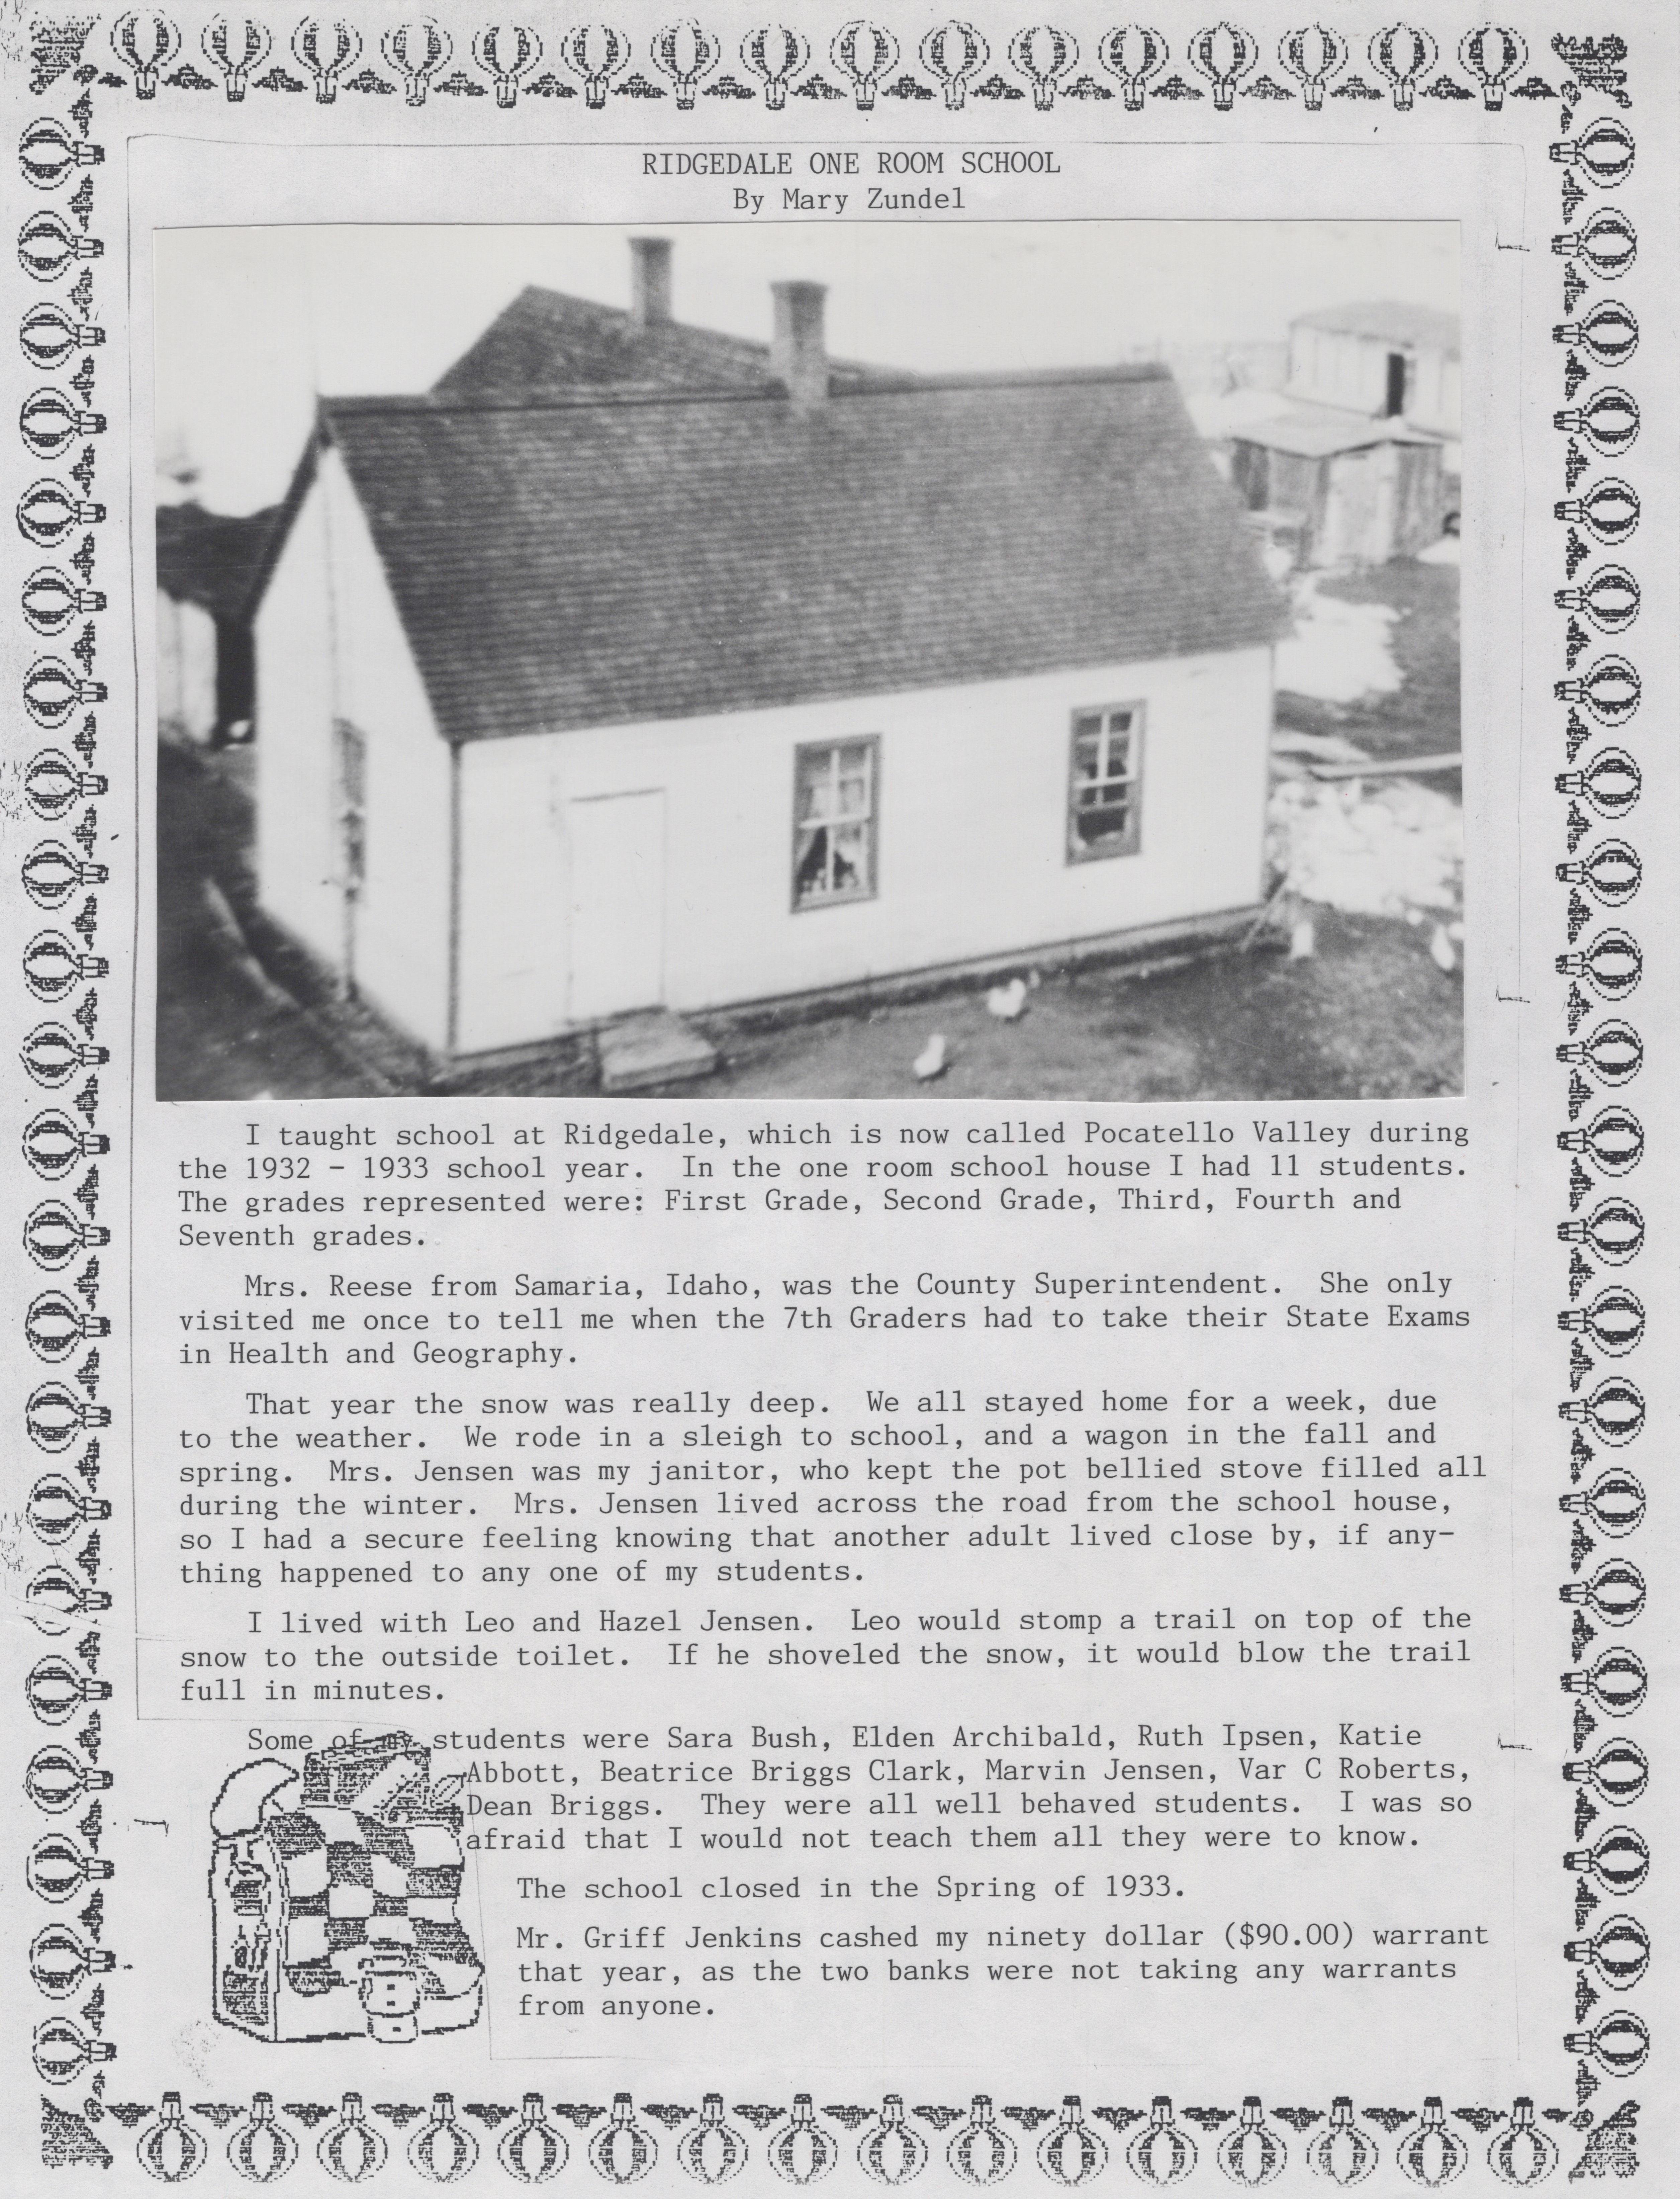 RIDGEDALE ONE ROOM SCHOOL
By Mary Zundel
I taught school at Ridgedale, which is now called Pocatello Valley during
the 1932 - 1933 school year.  In the one room school house I had 11 students.
The grades represented were: First Grade, Second Grade, Third, Fourth and
Seventh grades.
Mrs. Reese from Samaria, Idaho, was the County Superintendent.  She only
visited me once to tell me when the 7th Graders had to take their State Exams
in Health and Geography.
That year the snow was really deep.  We all stayed home for a week, due
to the weather.  We rode in a sleigh to school, and a wagon in the fall and
spring.  Mrs. Jensen was my janitor, who kept the pot bellied stove filled all
during the winter.  Mrs. Jensen lived across the road from the school house,
so I had a secure feeling knowing that another adult lived close by, if any-
thing happened to any one of my students.
I lived with Leo and Hazel Jensen.  Leo would stomp a trail on top of the
snow to the outside toilet.  If he shoveled the snow, it would blow the trail
full in minutes.
Some of my students were Sara Bush, Elden Archibald, Ruth Ipsen, Katie
Abbott, Beatrice Briggs Clark, Marvin Jensen, Var C Roberts,
Dean Briggs.  They were all well behaved students.  I was so
afraid that I would not teach them all they were to know.
The school closed in the Spring of 1933.
Mr. Griff Jenkins cashed my ninety dollar ($90.00) warrant
that year, as the two banks were not taking any warrants
from anyone.